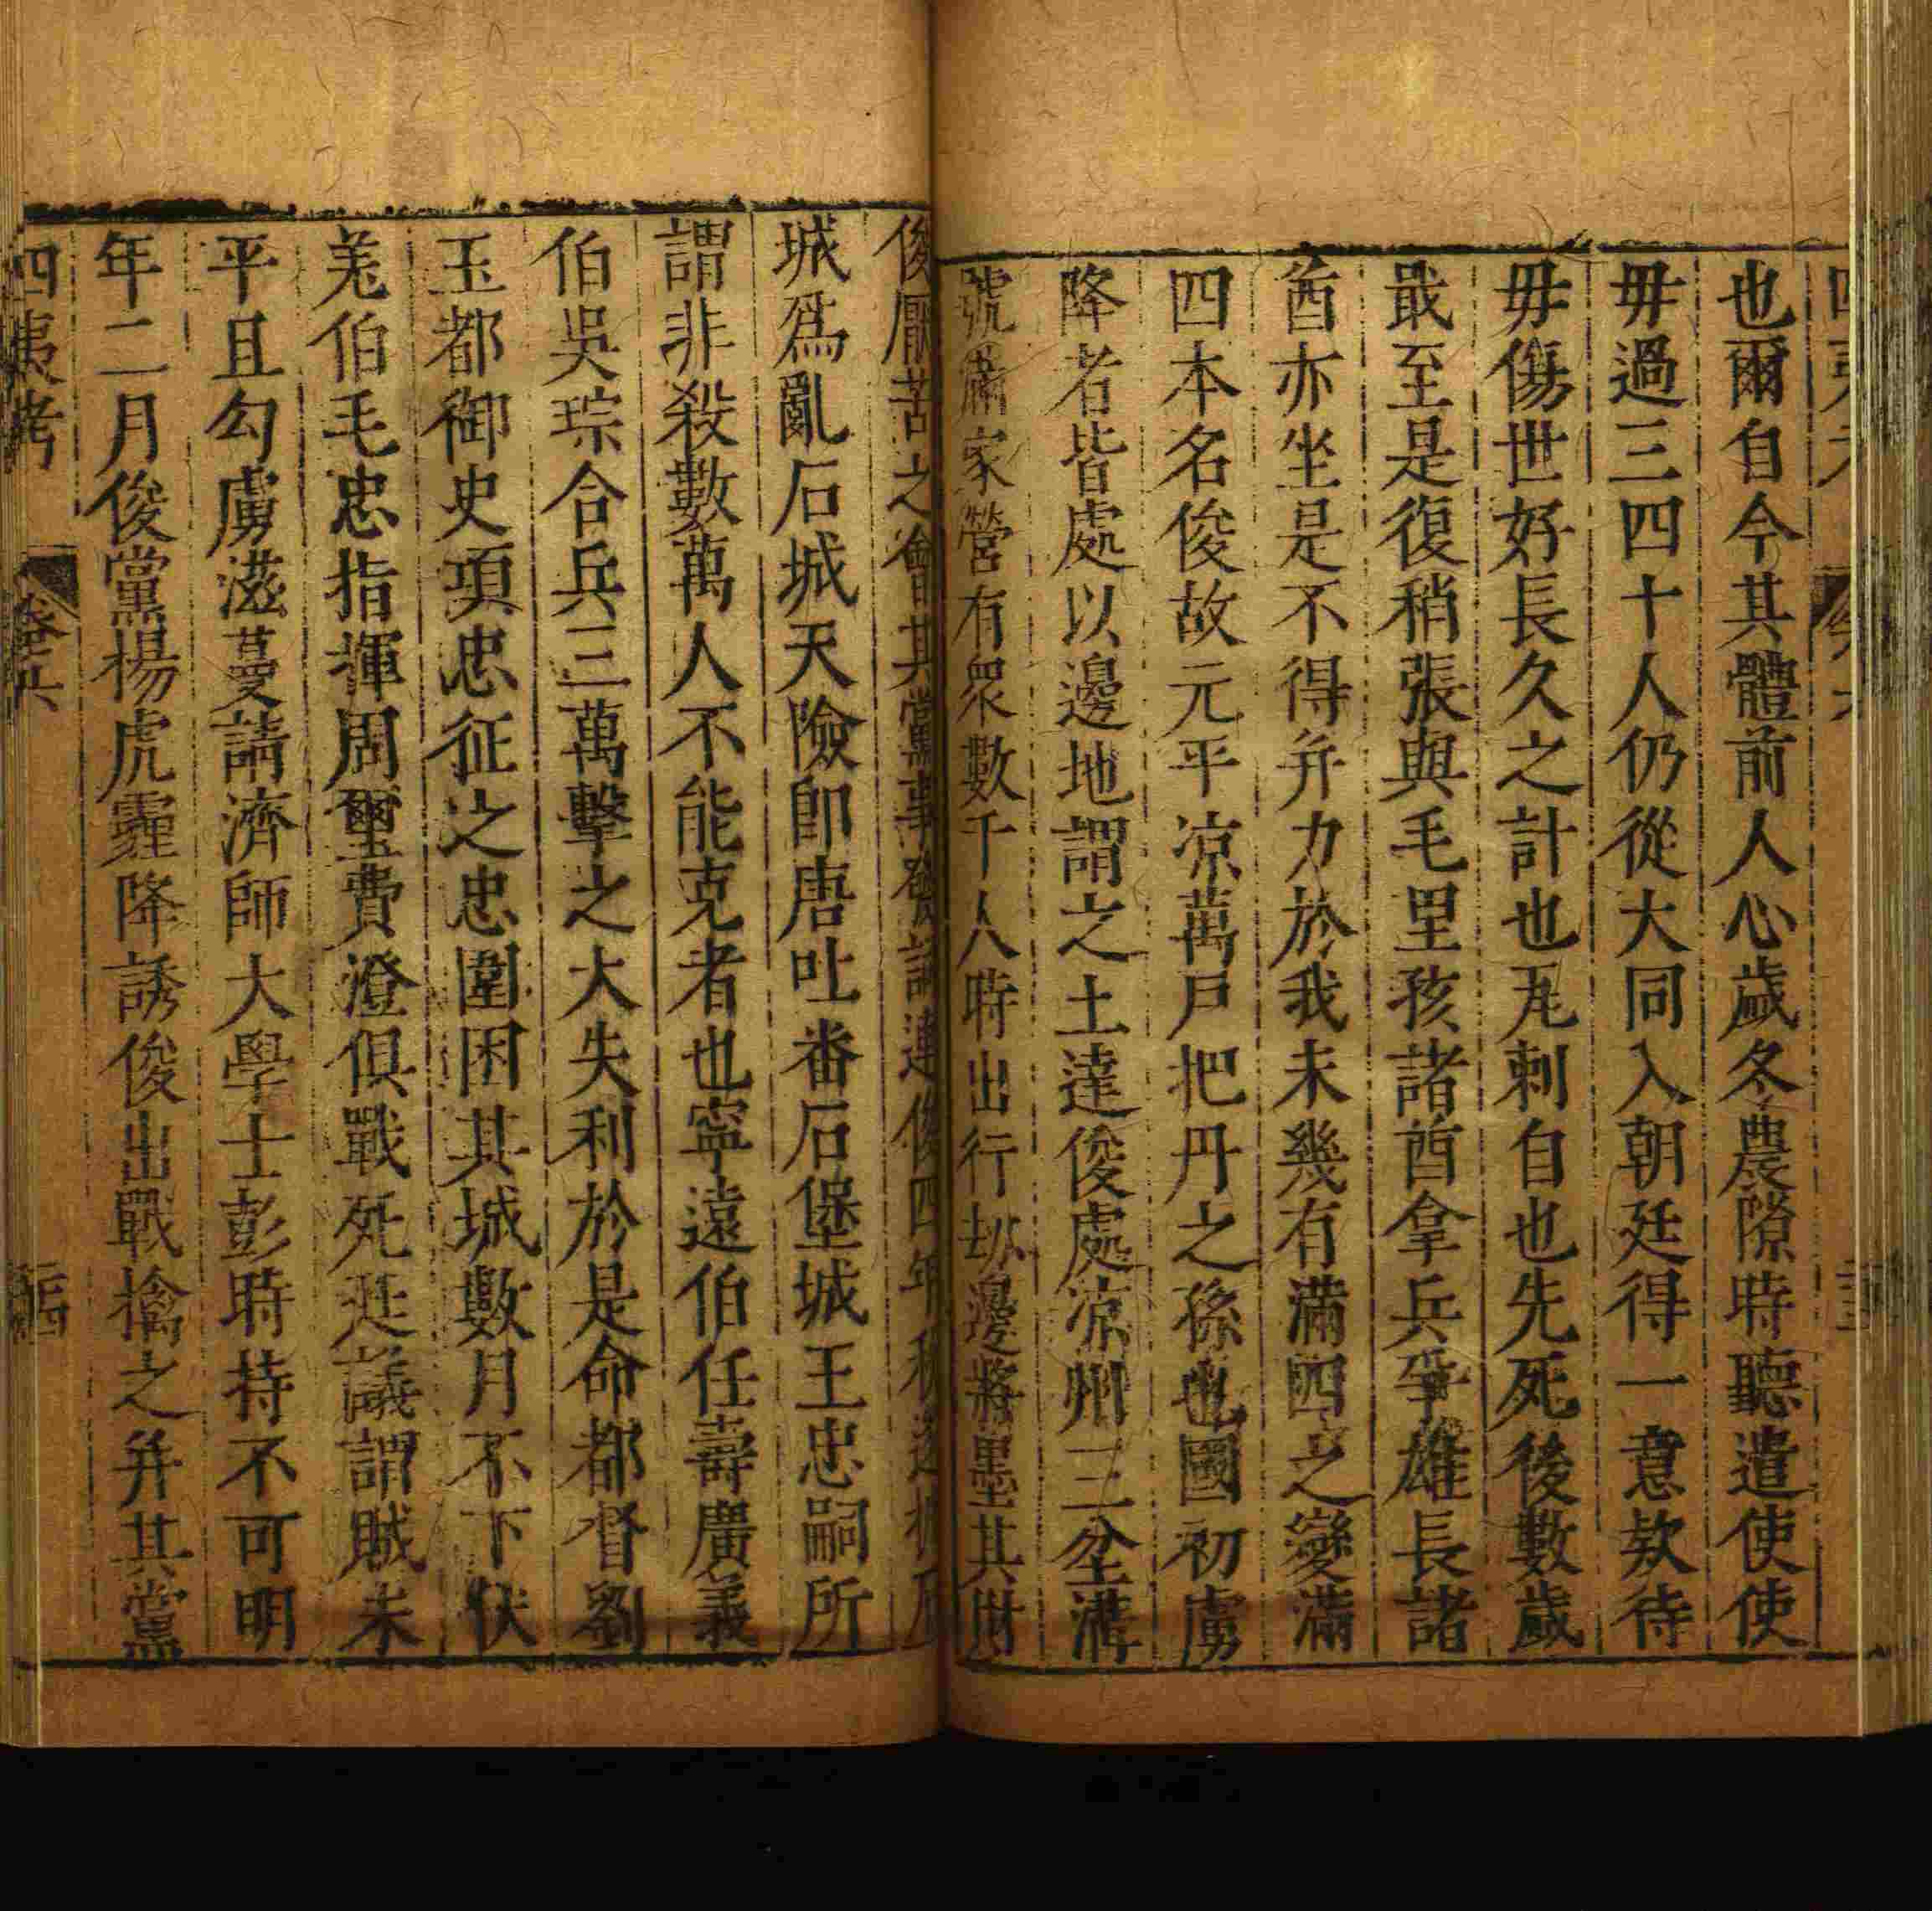 也爾自今其體前人心歲冬農隙時聽遣使使
毋過三四十人仍從大同入朝廷得一意欵待
毋傷世好長久之計也瓦剌自也先死後數歲
最至是復稍張與毛里孩諸酋拿兵爭雄長諸
酋亦坐是不得并力於我未幾有滿四之變滿
四本名俊故元平凉萬戶把丹之孫也國初虜
降者皆處以邊地謂之土達俊處凉州三岔溝
號滿家營有衆數千人時出行劫邊將墨其財
俊厭苦之會其黨事發詞連俊四年秋遂據石
城爲亂石城天險卽唐吐番石堡城王忠嗣所
謂非殺數萬人不能克者也寧遠伯任壽廣義
伯吳琮合兵三萬擊之大失利於是命都督劉
玉都御史項忠征之忠圍困其城數月不下伏
羗伯毛忠指揮周璽費澄俱戰死廷議謂賊未
平且勾虜滋蔓請濟師大學士彭時持不可明
年二月俊黨楊虎霾降誘俊出戰擒之并其黨
四夷考 卷六